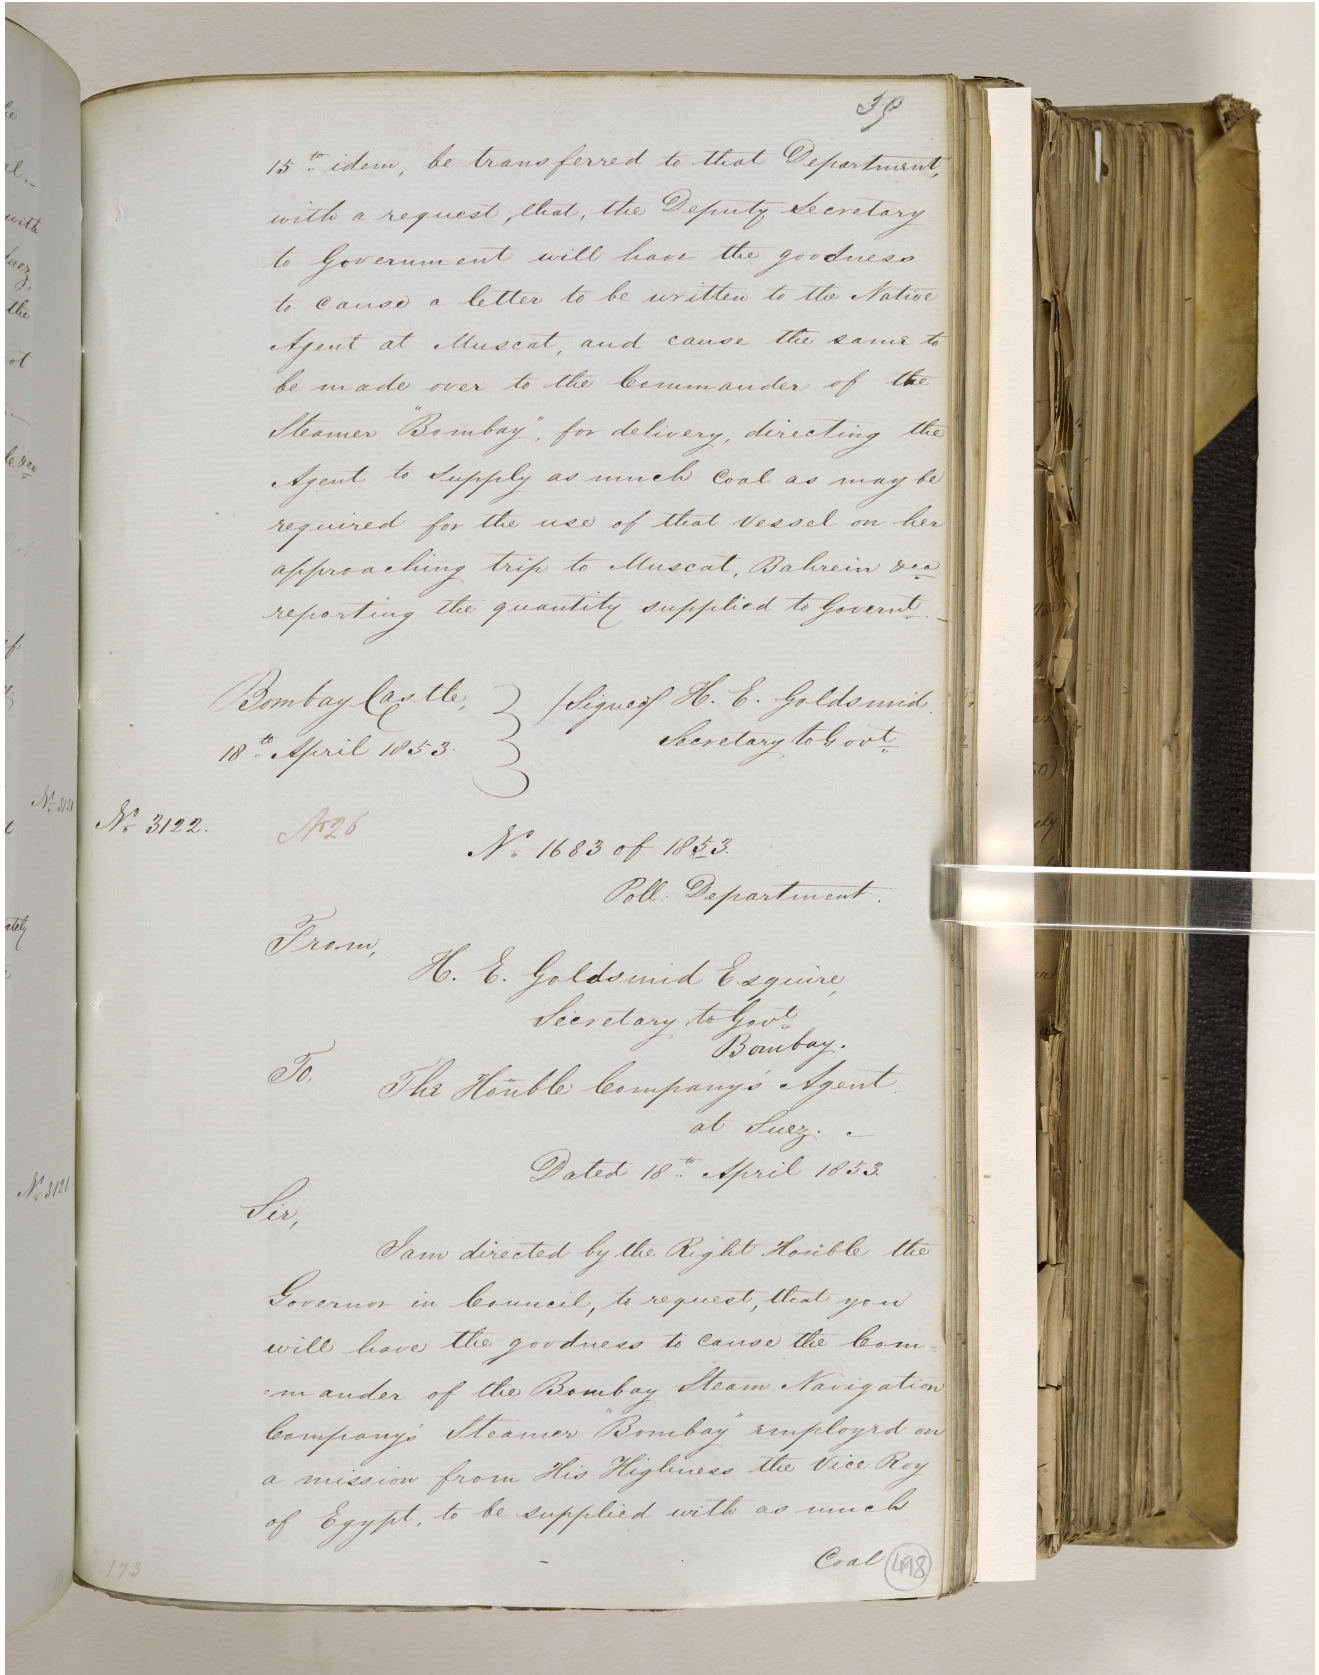 15th idem, be transferred to that Department,
with a request, that, the Deputy Secretary
to Government will have the goodness
to cause a letter to be written to the Native
Agent at Muscat, and cause the same to
be made over to the Commander of the
Steamer "Bombay", for delivery, directing the
Agent to supply as much Coal as may be
required for the use of that Vessel on her
approaching trip to Muscat, Bahrein &ca
reporting the quantity supplied to Governt. _
Bombay Castle,
18th April 1853.
/Signed/ H. E. Goldsmid.
Secretary to Govt
No. 3122.
No 26
No. 1683 of 1853.
Poll. Department.
From,
H. E. Goldsmid Esquire,
Secretary to Govt
Bombay.
To,
The Honble Company's Agent
at Suez. _
Dated 18th April 1853.
Sir,
I am directed by the Right Honible the
Governor in Council, to request, that you
will have the goodness to cause the Com=
=mander of the Bombay Steam Navigation
Company's Steamer "Bombay" employed on
a mission from His Highness the Vice Roy
of Egypt, to be supplied with as much
Coal
498
173
with
Suez,
the
No. 3121
No. 3121